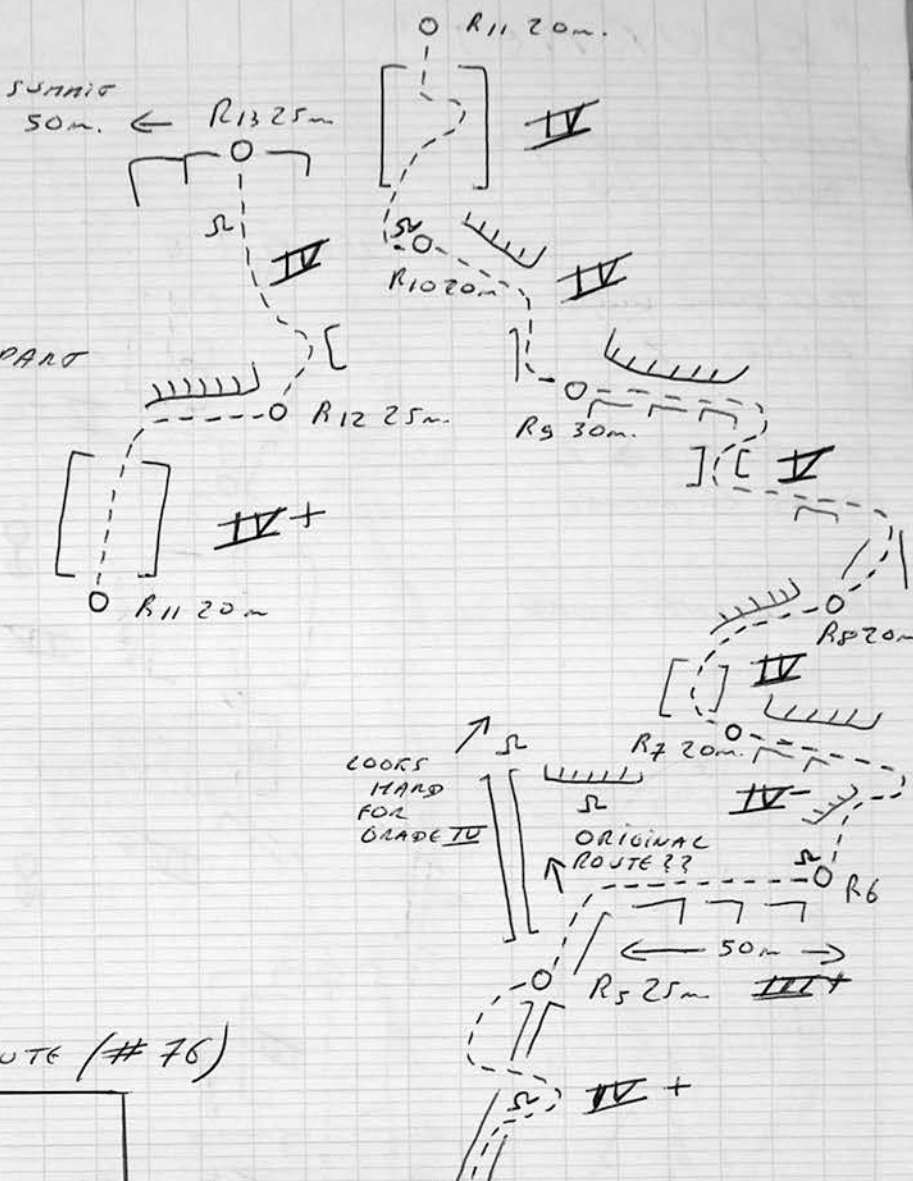 R11 20m.
SUMMIT
50m. ← R13 25m
IV
IV
R10 20m
IV
PART
R12 25m.
R9 30m.
V
IV+
R11 20m
R8 20m
IV
R7 20m.
LOOKS
HARD
FOR
GRADE IV
IV-
ORIGINAL
ROUTE ??
R6
50m
R5 25m III+
UTE (# 76)
IV +